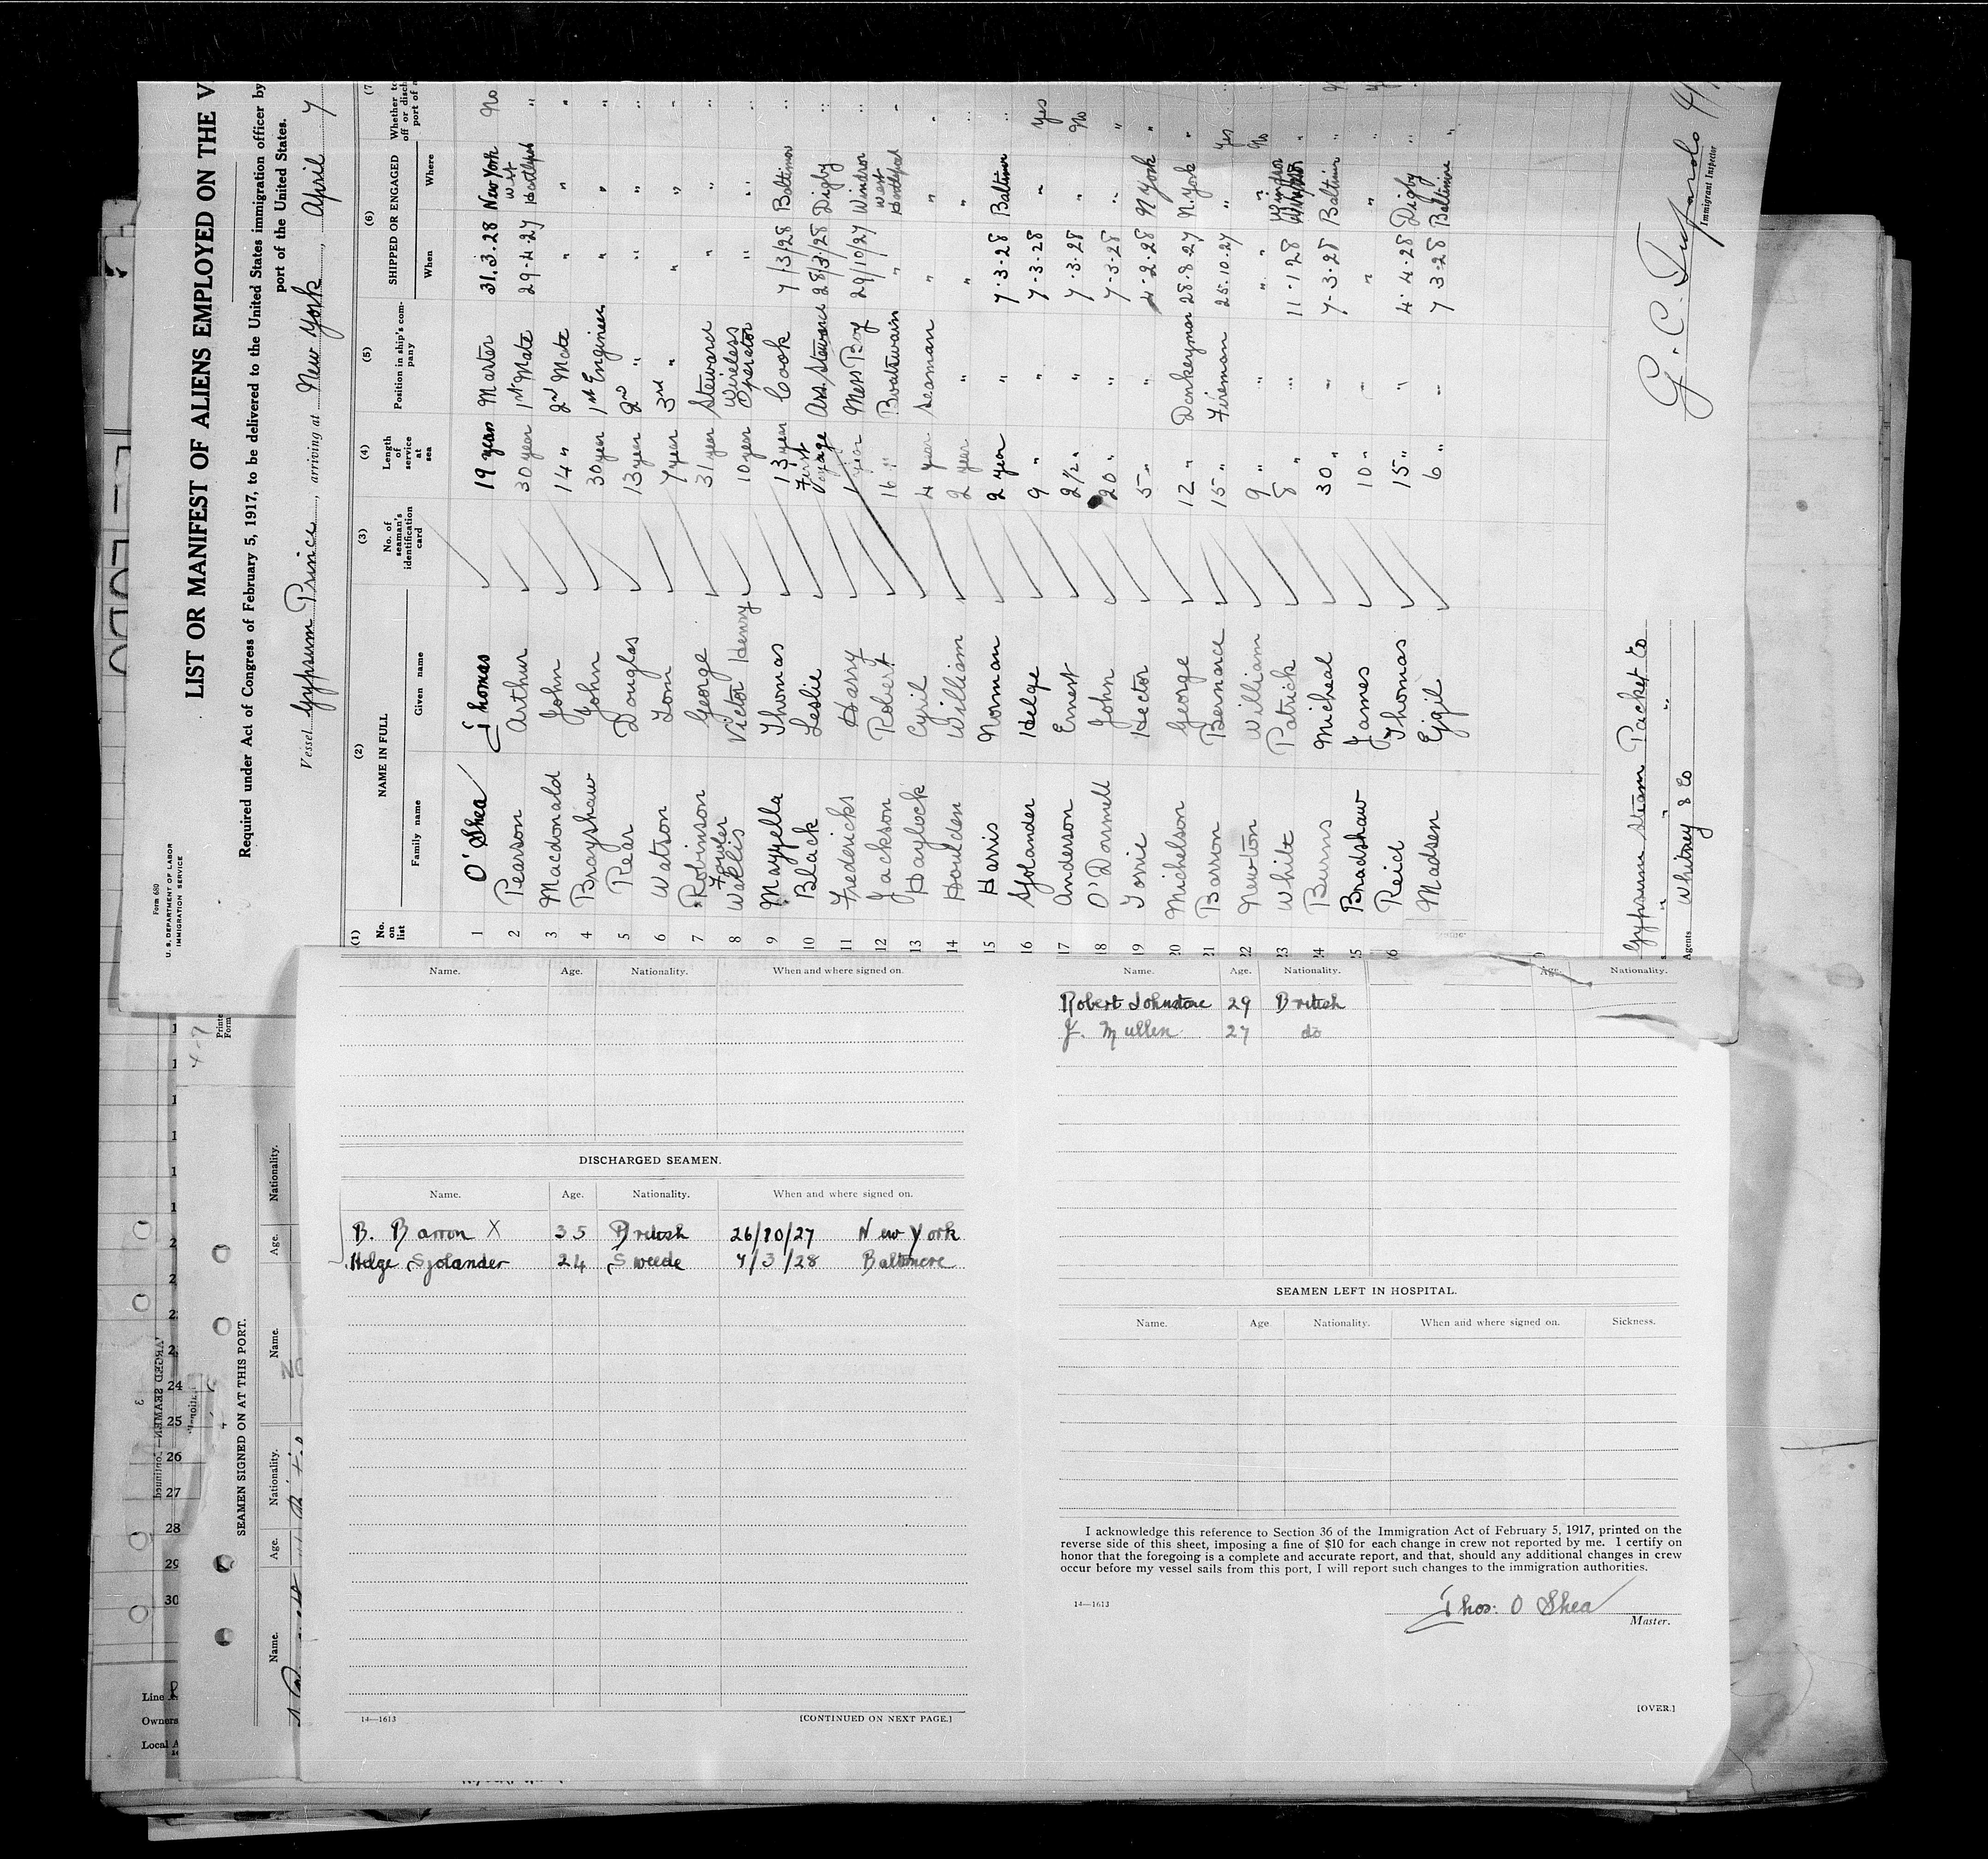 Form 680
U. S. DEPARTMENT OF LABOR
IMMIGRATION SERVICE
LIST OR MANIFEST OF ALIENS EMPLOYED ON THE V
Required under Act of Congress of February 5, 1917, to be delivered to the United States immigration officer by
port of the United States.
Vessel Gypsum Prince, arriving at New York, April 7
(1) (2) (3) (4) (5) (6) (7
No. on list NAME IN FULL No. of seaman's identification card Length of service at sea Position in ship's company SHIPPED OR ENGAGED Whether to
off or disch
port of
Family name Given name When Where
1 O'Shea Thomas 19 years Master 31.3.28 New York No
2 Pearson Arthur 30 year 1st Mate 29-4-27 West Hartlepool "
3 Macdonald John 14 " 2nd Mate " " "
4 Brayshaw John 30 year 1st Engineer " " "
5 Pear Douglas 13 year 2nd " " " "
6 Watson Tom 7 year 3rd " " " "
7 Robinson George 31 year Steward " " "
8 Fowler Wallis Victor Henry 10 year Wireless Operator " " "
9 Mayyella Thomas 13 year Cook 7/3/28 Baltimor "
10 Black Leslie First Voyage Ass. Steward 28/3/28 Digby "
11 Fredericks Harry 1 year Mess Boy 29/10/27 Windsor "
12 Jackson Robert 16 " Boatswain " West Hartlepool "
13 Haylock Cyril 4 year Seaman " " "
14 Houlden William 2 year " " " "
15 Harris Norman 2 year " 7-3-28 Baltimor "
16 Sjolander Helge 9 " " 7-3-28 " Yes
17 Anderson Ernest 2 1/2 " " 7-3-28 " No
18 O'Darnell John 20 " " 7-3-28 " "
19 Torrie Hector 5 " " 4-2-28 N York "
20 Michelson George 12 " Donkeyman 28-8-27 N. York "
21 Barron Bernard 15 " Fireman 25-10-27 " Yes
22 Newton William 9 " " " " No
23 White Patrick 8 " " 11-1-28 Windsor "
24 Burns Micheal 30 " " 7-3-28 Baltimor "
25 Bradshaw James 10 " " " " "
26 Reid Thomas 15 " " 4-4-28 Digby "
Madsen Ejgil 6 " " 7 3-28 Baltimore "
Gypsum Steam Packet Co
" " "
Agents Whitney & Co
Immigrant Inspector
Name. Age. Nationality. When and where signed on.
DISCHARGED SEAMEN.
Name. Age. Nationality. When and where signed on.
B. Barron X 35 British 26/10/27 New York
Helge Sjolander 24 Sweede 7/3/28 Baltimore
14—1613 [CONTINUED ON NEXT PAGE.]
Name. Age. Nationality. Age. Nationality.
Robert Johnstone 29 British
J. Mullen 27 do
SEAMEN LEFT IN HOSPITAL.
Name. Age. Nationality. When and where signed on. Sickness.
I acknowledge this reference to Section 36 of the Immigration Act of February 5, 1917, printed on the
reverse side of this sheet, imposing a fine of $10 for each change in crew not reported by me. I certify on
honor that the foregoing is a complete and accurate report, and that, should any additional changes in crew
occur before my vessel sails from this port, I will report such changes to the immigration authorities.
14—1613
Thos. O Shea
Master.
[OVER.]
4-7
Printe
Form
SEAMEN SIGNED ON AT THIS PORT.
Name. Age. Nationality. Name. Age. Nationality.
24
25
26
27
28
29
30
Line
Owners
Local A